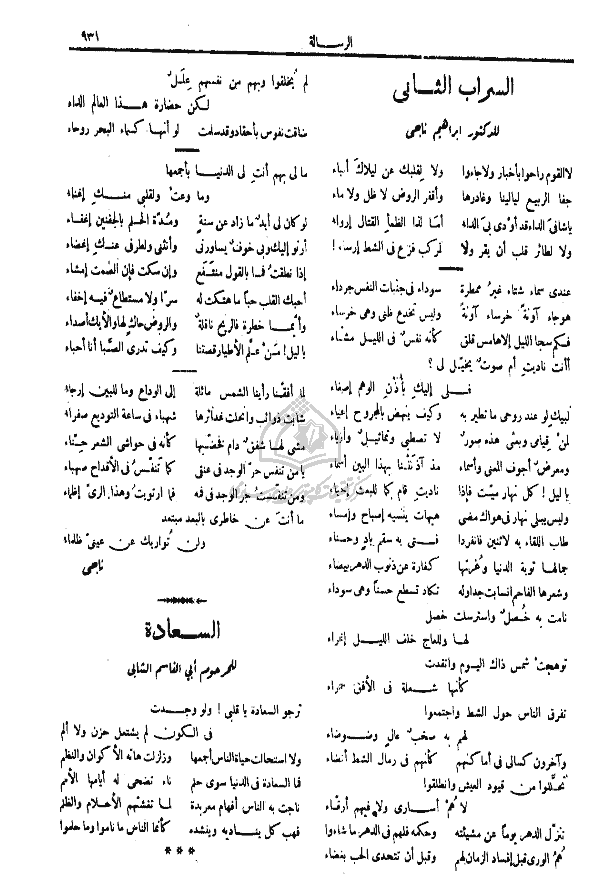 ٩٣١
الرسالة
السراب الثاني
للدكتور ابراهيم ناجي
لا القوم راحوا بأخبار ولا جاءوا ولا لقلبك عن ليلاك أنباء
جفا الربيع ليالينا وغادرها وأقفر الروض لا ظل ولا ماء
يا شافيَ الداء قد أودى بيَ الداء أما لذا الظمأ القتال إرواء
ولا لطائر قلب أن يقر ولا لمركب فزع في الشط إرساء!
عندي سماء شتاء غيرُ ممطرة سوداء في جنبات النفس جرداء
خرساء آونةً هوجاء آونةً وليس تخدع ظني وهي خرساء
فكم سجا الليل إلا هامس قلق كأنه نفسٌ في الليل مشّاء
أأنت ناديتِ أم صوتٌ يخيّل لي؟
فلي إليكِ بأُذْن الوهم إصغاء
لبيكِ لو عند روحي ما تطير به وكيف ينهض بالمجروح إعياء
لمن قيامي وبعني هذه صورٌ لا تصطبي وتماثيلٌ وأزياء
ومعرض أجوف المعنى وأسماء مذ آذنتْنا بهذا البين أسماء
يا ليل! كل نهار ميّت فإذا ناديتِ قام كما للبعث إحياء
وليس يبلى نهار في هواك مضى هيهات ينسيه إصباح وإمساء
طاب اللقاء به لاثنين فانفردا فتى به سقم بادٍ وحسناء
جمالها توبة الدنيا وغُرتها كفارة عن ذنوب الدهر بيضاء
وشعرها الفاحم انسابت جداوله تكاد تسطع حسناً وهي سوداء
نامت به خُصلٌ واسترسلت خصل
لها وللعاج خلف الليل إغراء
توهجتْ شمس ذاك اليوم واتقدت
كأنها شعلة في الأفق حمراء
تفرق الناس حول الشط واجتمعوا
لهم به صخبٌ عالٍ وضوضاء
وآخرون كسالى في أماكنهم كأنهم في رمال الشط أنضاء
تحللوا من قيود العيش وانطلقوا!
لا هُمْ أسارى ولا فيهم أرقاء
تنزّل الدهر يوماً عن مشيئته وحكمه فلهم في الدهر ما شاءوا
هُمُ الورى قبل إفساد الزمان لهم وقبل أن تتحدى الحب بغضاء
لم يُخلقوا وبهم من نفسهم عِلَلٌ
لكن حضارة هذا العالم الداء
ضاقت نفوس بأحقاد وقد سلمت لو أنها كسماء البحر روحاء
ما لي بهم أنتِ لي الدنيا بأجمعها
وما وعتْ ولقلبي منكِ إغناء
لو كان لي أبدٌ ما زاد عن سنةٍ ومُدّة الحلم بالجفنين إغفاء
أرنو إليكِ وبي خوفٌ يساورني وأنثني ولطرفي عنكِ إغضاء
إذا نطقتُ فما بالقول منتفَع وإن سكت فإن الصمت إفشاء
أحبكِ القلب حباً ما هتكت له سراً ولا مستطاع فيه إخفاء
وأيّما خطرة فالريح ناقلةٌ والروض حاكٍ لها والأيك أصداء
يا ليل! مَنْ علّم الأطيار قصتنا وكيف تدري الصّبا أنا أحباء
لما أفقنا رأينا الشمس مائلة إلى الوداع وما للبين إرجاء
شابت ذوائب وانحلت غدائرها شهباء في ساعة التوديع صفراء
مشى لها شفقٌ دامٍ فخضّبها كأنه في حواشي الشعر حِنّاء
يا من تنفسَ حرَّ الوجد في عنقي كما تنفسُ في الأقداح صهباء
ومن تنفستُ حر الوجد في فمه فما ارتويتُ وهذا الريّ إظماء
ما أنتَ عن خاطري بالبعد مبتعد
ولن تُواريك عن عينيّ ظلماء
ناجي
السعادة
للمرحوم أبي القاسم الشابي
ترجو السعادة يا قلبي! ولو وجدت
في الكون لم يشتعل حزن ولا ألم
ولا استحالت حياة الناس أجمعها وزلزلت هاته الأكوان والنظم
فما السعادة في الدنيا سوى حلم ناء تضحي له أيامها الأمم
ناجت به الناس أفهام معربدة لما تغشّتهم الأحلام والظلم
فهب كل يناديه وينشده كأنما الناس ما ناموا وما حلموا
* * *